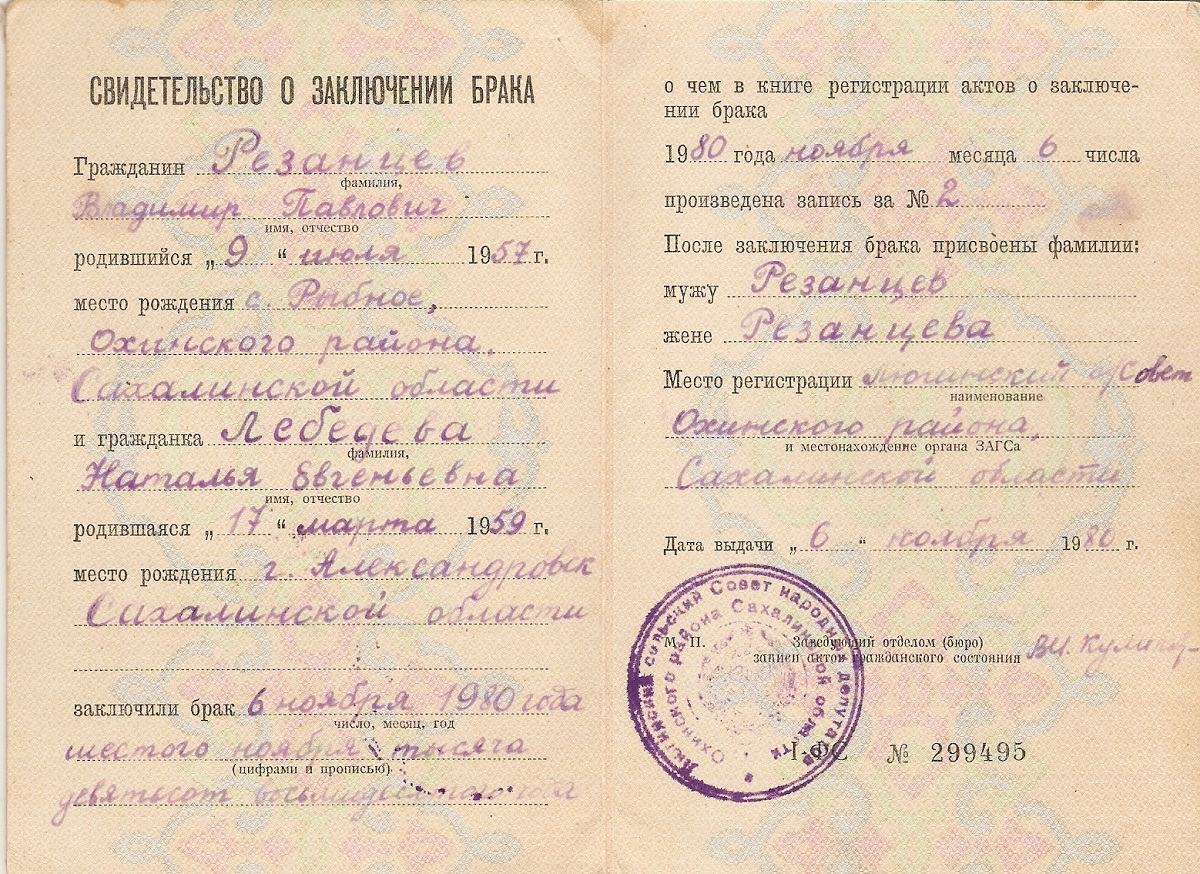 СВИДЕТЕЛЬСТВО О ЗАКЛЮЧЕНИИ БРАКА
Гражданин Резанцев
фамилия,
Владимир Павлович
имя, отчество
родившийся „ 9 “ июля 1957 г.
место рождения с. Рыбное,
Охинского района,
Сахалинской области
и гражданка Лебедева
фамилия,
Наталья Евгеньевна
имя, отчество
родившаяся „ 17 “ марта 1959 г.
место рождения г. Александровск
Сахалинской области
заключили брак 6 ноября 1980 года
число, месяц, год
шестого ноября тысяча
(цифрами и прописью)
девятьсот восьмидесятого года
о чем в книге регистрации актов о заключе-
нии брака
1980 года ноября месяца 6 числа
произведена запись за № 2
После заключения брака присвоены фамилии:
мужу Резанцев
жене Резанцева
Место регистрации с/совет
наименование
Охинского района,
и местонахождение органа ЗАГСа
Сахалинской области
Дата выдачи „ 6 “ ноября 1980 г.
М. П. Заведующий отделом (бюро)
записи актов гражданского состояния
сельский Совет народных депутатов
Охинского района Сахалинской области
I-ФС № 299495